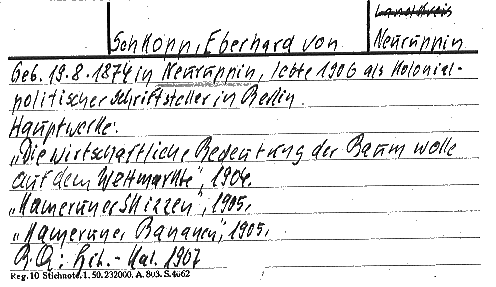 Landkreis
Schkopp, Eberhard von Neuruppin
Geb. 19.8.1874 in Neuruppin, lebte 1906 als Kolonial-
politischer Schriftsteller in Berlin.
Hauptwerke:
„Die wirtschaftliche Bedeutung der Baumwolle
auf dem Weltmarkte", 1904.
„Kameruner Skizzen", 1905.
„Kameruner Bananen", 1905.
Lit.-Kal. 1907
Reg. 10 Stichnote. 1. 50. 232000. A. 803. S. 4662